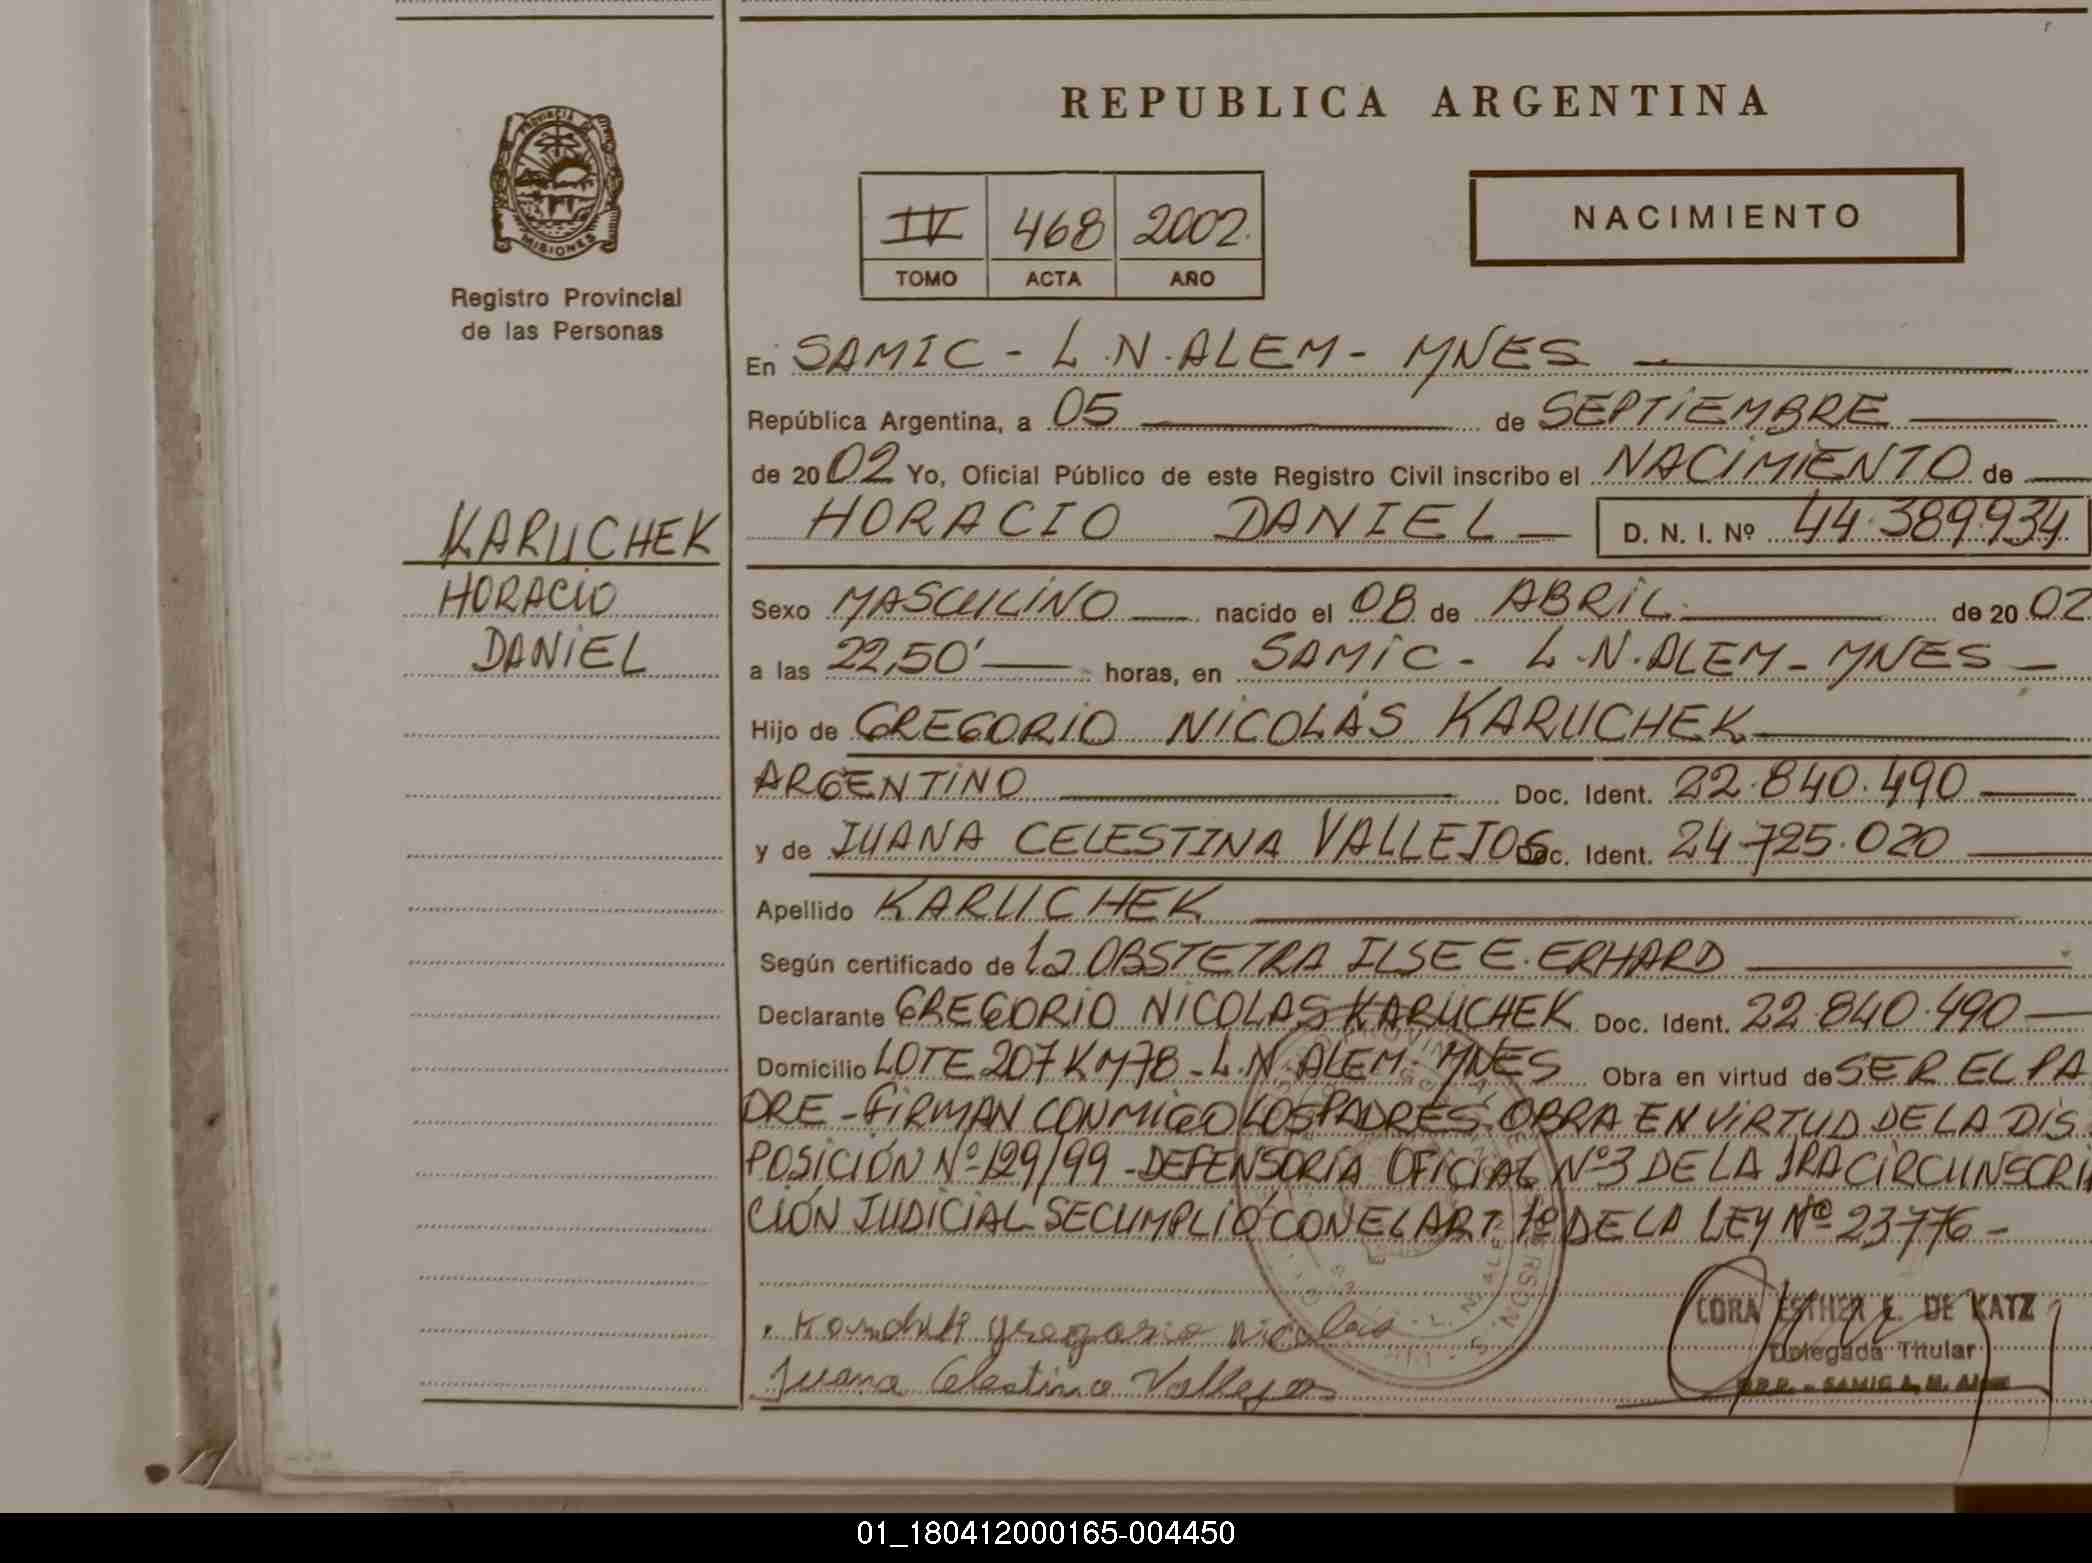 REPUBLICA ARGENTINA
PROVINCIA DE
MISIONES
Registro Provincial
de las Personas
IV 468 2002.
TOMO ACTA AÑO
NACIMIENTO
En SAMIC - L.N.ALEM - MNES
República Argentina, a 05 de SEPTIEMBRE
de 2002 Yo, Oficial Público de este Registro Civil inscribo el NACIMIENTO de
HORACIO DANIEL D. N. I. Nº 44.389.934
KARUCHEK
HORACIO
DANIEL
Sexo MASCULINO nacido el 08 de ABRIL de 2002
a las 22,50' horas, en SAMIC - L.N.ALEM - MNES
Hijo de GREGORIO NICOLÁS KARUCHEK
ARGENTINO Doc. Ident. 22.840.490
y de JUANA CELESTINA VALLEJOS Doc. Ident. 24.725.020
Apellido KARUCHEK
Según certificado de la OBSTETRA ILSE E. ERHARD
Declarante GREGORIO NICOLAS KARUCHEK Doc. Ident. 22.840.490
Domicilio LOTE 207 KM78 - L.N. ALEM - MNES Obra en virtud de SER EL PA
DRE - FIRMAN CONMIGO LOS PADRES. OBRA EN VIRTUD DE LA DIS
POSICIÓN Nº 129/99 - DEFENSORIA OFICIAL Nº3 DE LA 1RA CIRCUNSCRI
CIÓN JUDICIAL SE CUMPLIÓ CON EL ART 1º DE LA LEY Nº 23776 -
gregorio Nicolas
Juana Celestina Vallejos
CORA ESTHER E. DE KATZ
Delegada Titular
01_180412000165-004450